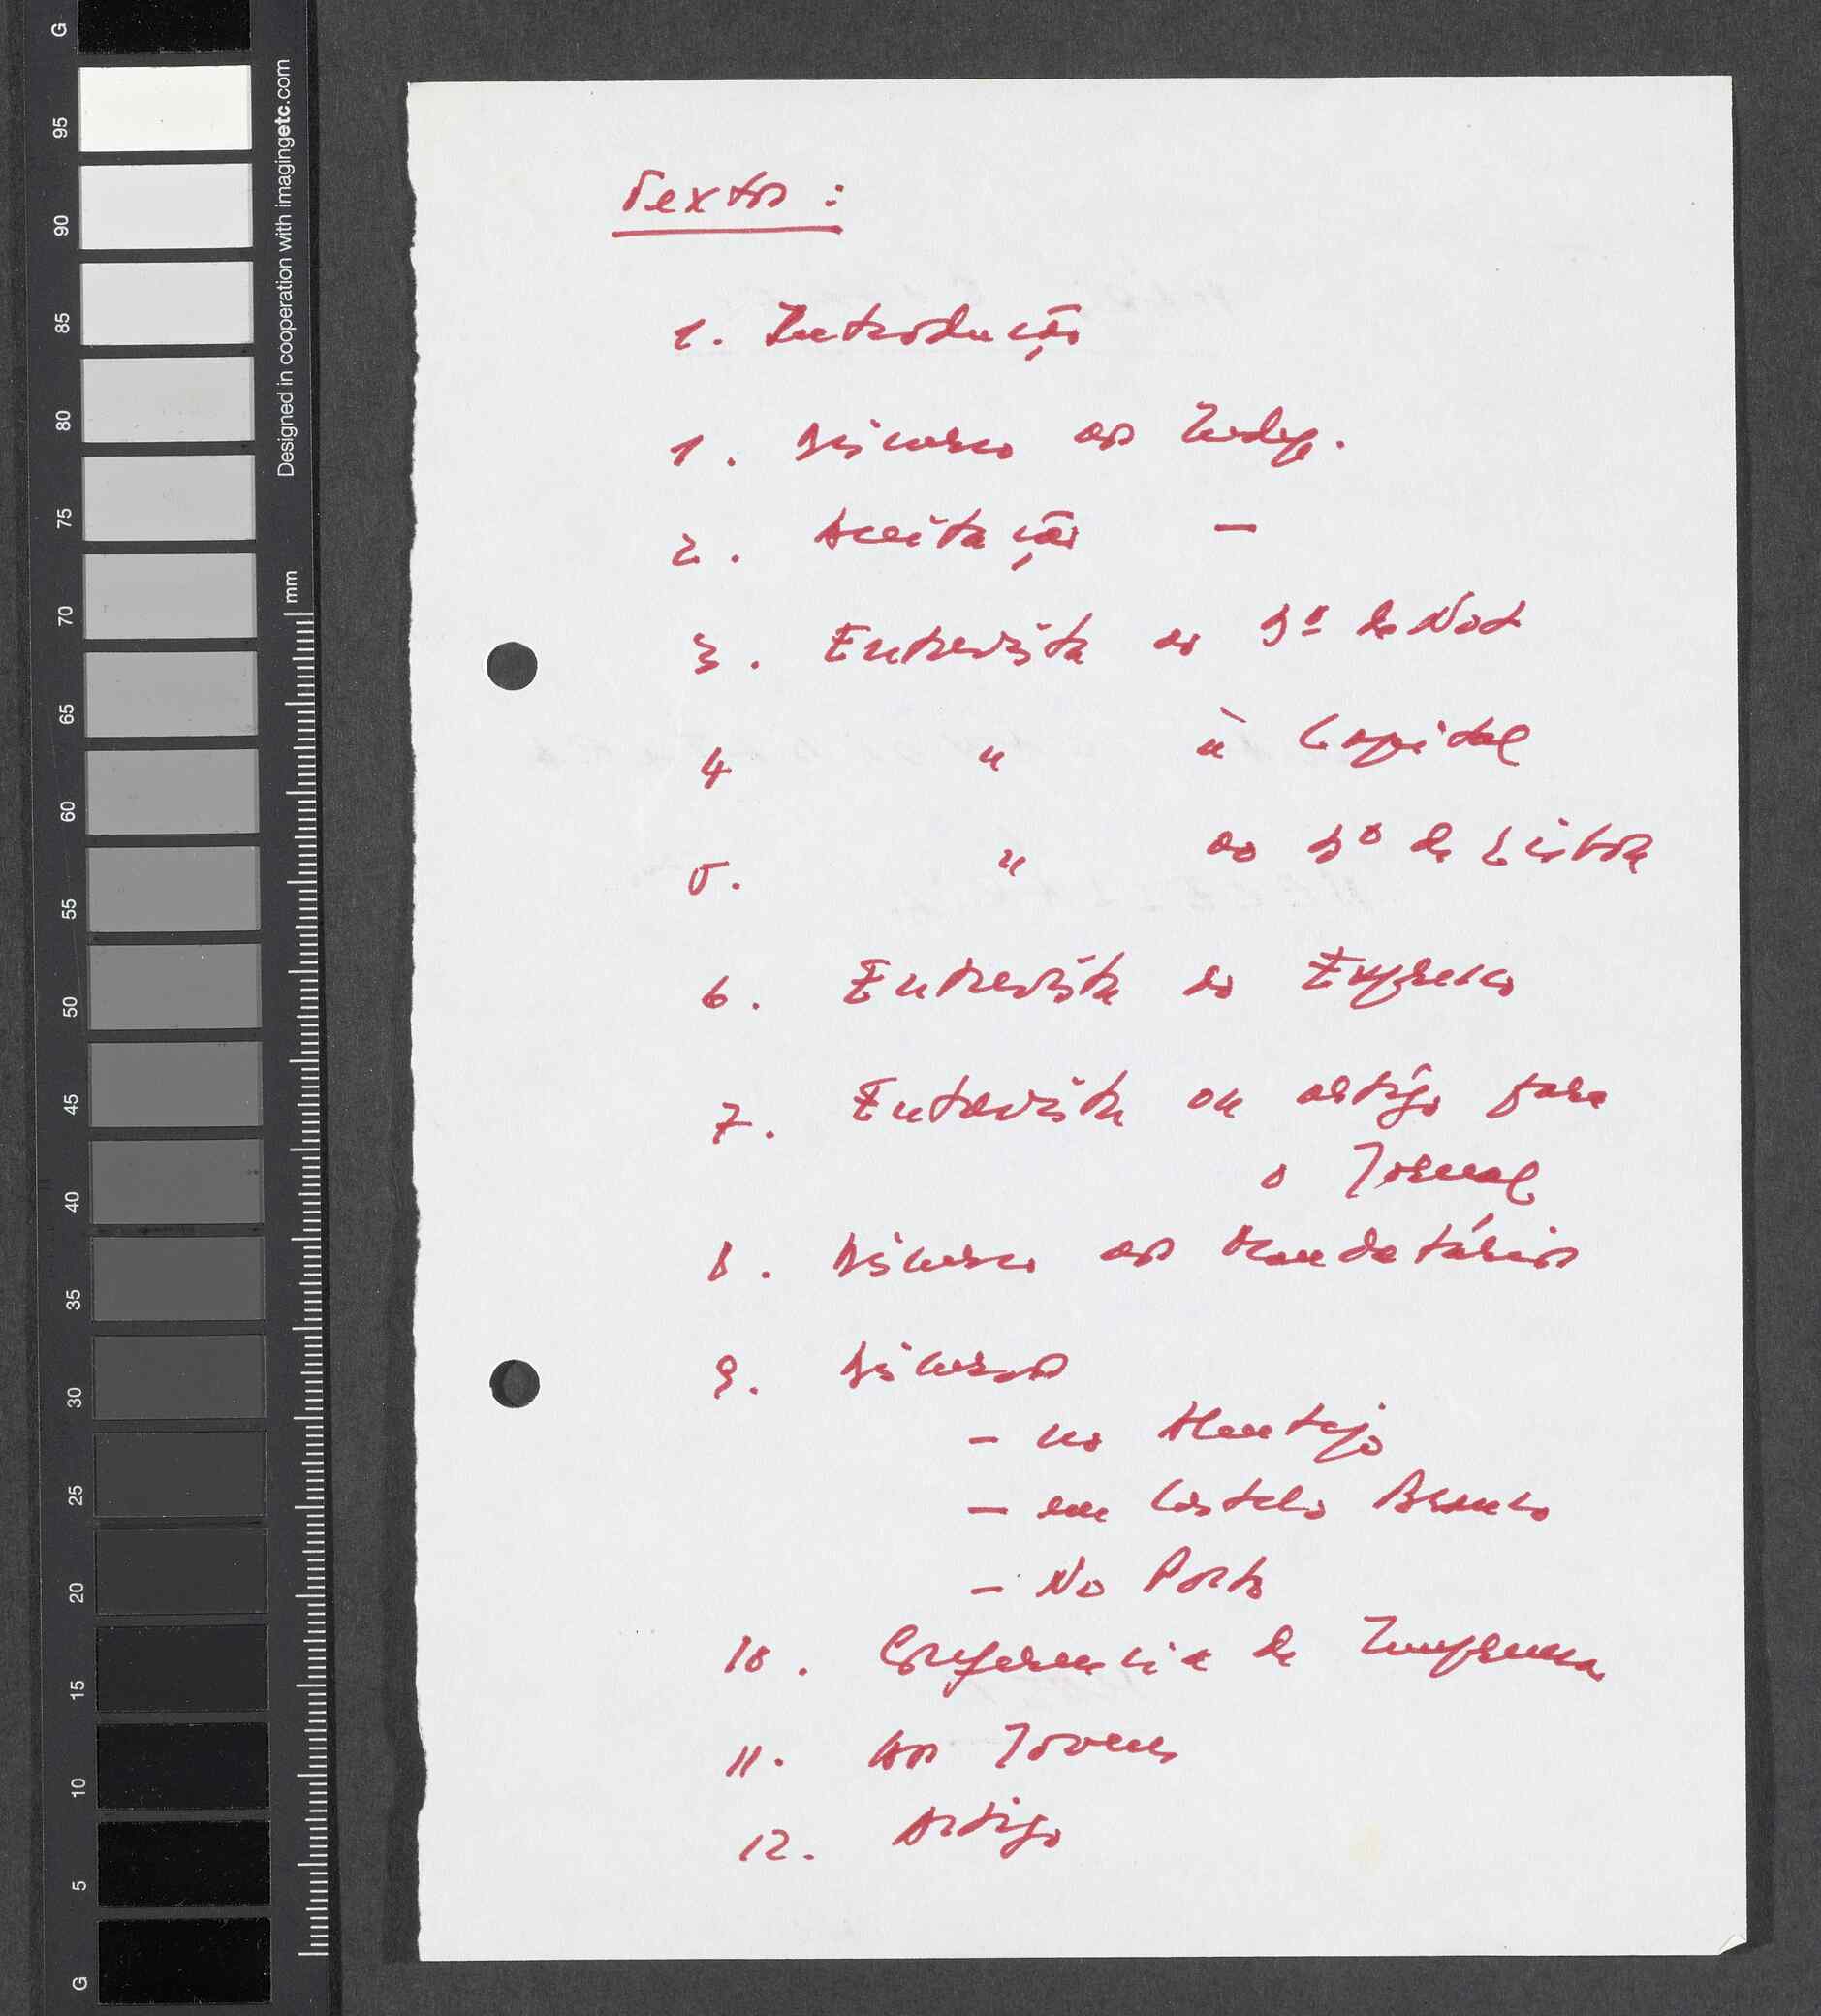 Textos :
1. Introdução
1. Discurso aos Indep.
2. Aceitação —
3. Entrevista ao Dº de Not
4 " à Capital
5. " ao Dº de Lisboa
6. Entrevista ao Expresso
7. Entrevista ou artigo para
o Jornal
8. Discurso aos Mandatários
9. Discursos
- no Alentejo
- em Castelo Branco
- No Porto
10. Conferencia de Imprensa
11. Aos Jovens
12. Artigo
G
95
90
85
80
75
70
65
60
55
50
45
40
35
30
25
20
15
10
5
G
Designed in cooperation with imagingetc.com
mm